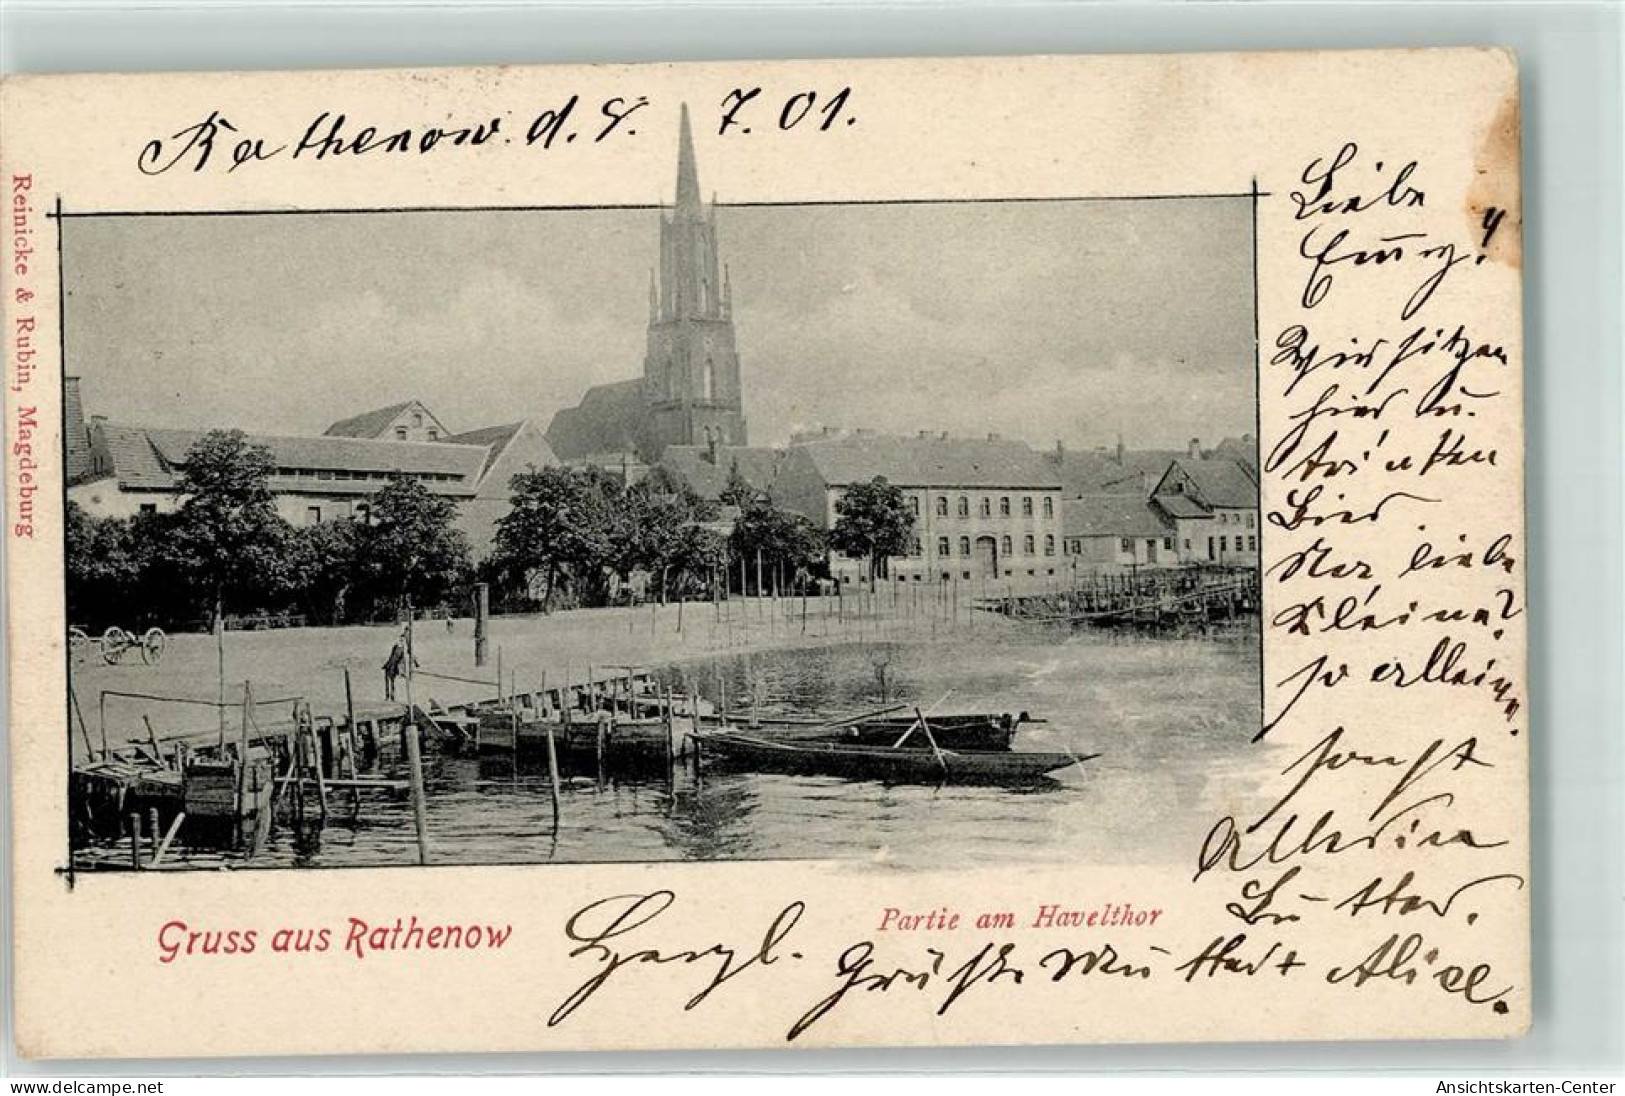 Rathenow. d. 8. 7. 01.
Reinicke & Rubin, Magdeburg
Liebe
Wir sitzen
hier u.
trinken
Bier.
liebe
Kleine?
so allein,
sonst
Gruss aus Rathenow
Partie am Havelthor
Herzl.
Grüße
Alice.
delcampe.net
Ansichtskarten-Center